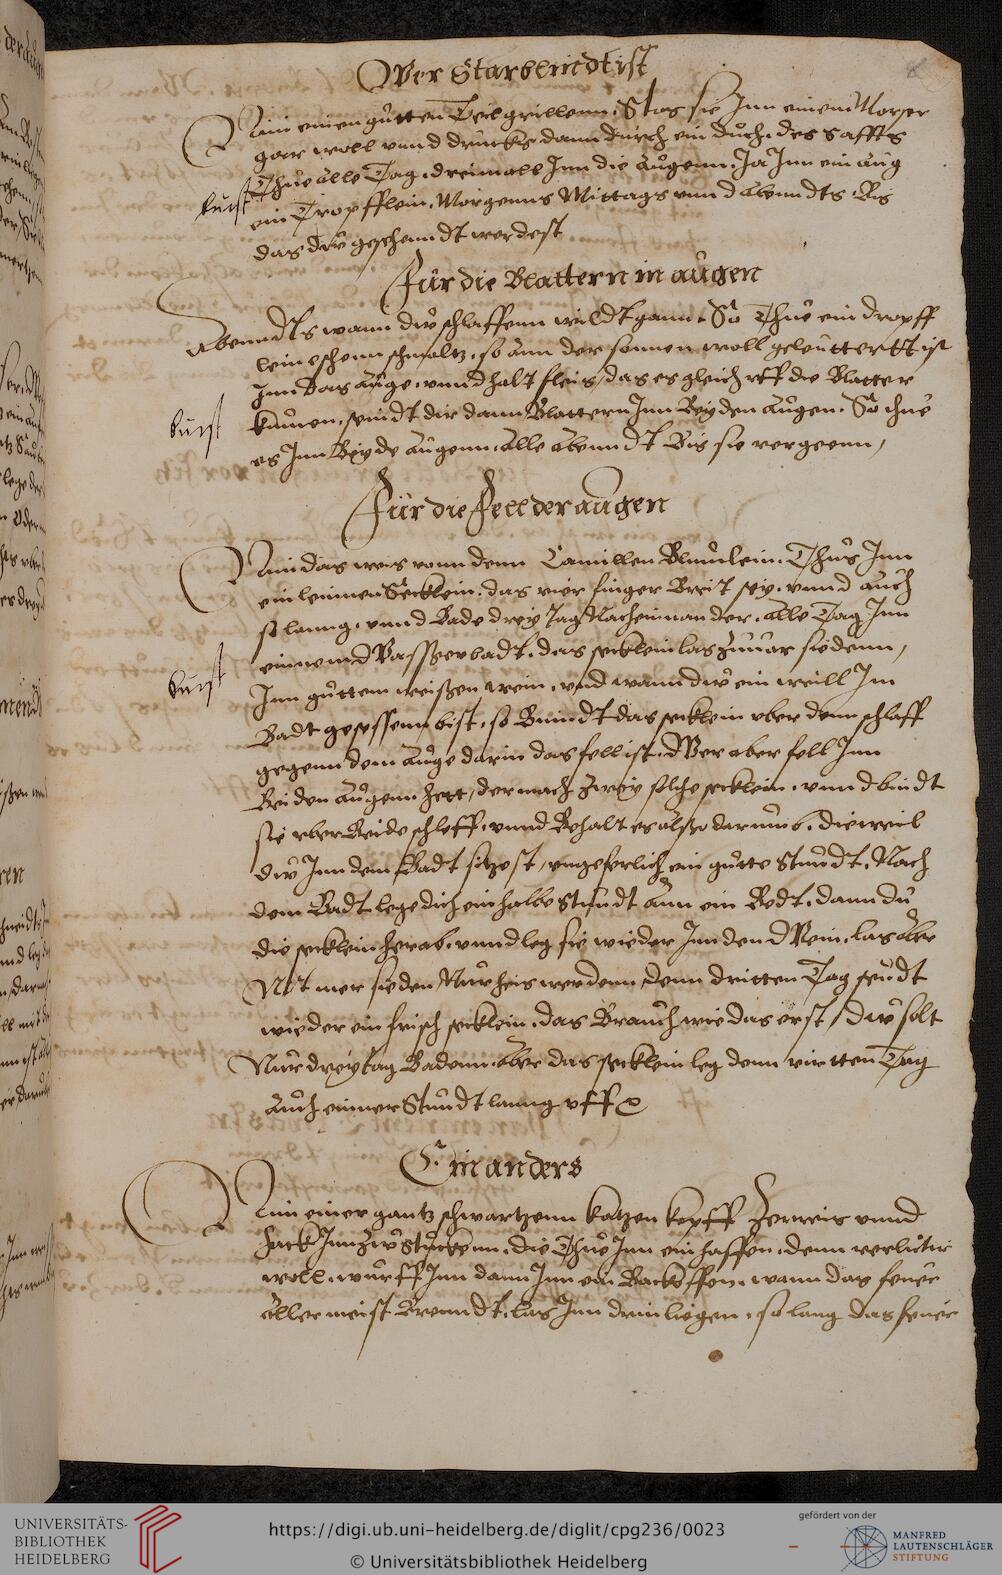 Wer Starblindt ist
Nim einen gutten Teil grillenn. Stos sie Inn einem Morser
gar woll vnnd drucks dann durch ein duch. des saffts
Thue alle Tag dreimall Inn die augenn. Ja Inn ein aug
kunst
ein Tropfflein, Morgenns Mittags vnnd abenndts. Bis
das du gesehenndt werdest
Für die Blattern in augen
Abenndts wann du schlaffenn wildt gann. So Thue ein dropff
lein eschenn schmaltz, so ann der sonnen woll geleuttertt ist
Inn das auge, vnnd halt fleis, das es gleich vff die Blatter
kunst
kumen, seindt dir dann Blattern Inn Beyden augen. So thue
es Inn Beyde augenn. alle abenndt Bis sie vergeenn,
Für die Fell der augen
Nim das weis vonn denn Camillen Blumlein. Thus Inn
ein leinnen Secklein. das vier finger Breit sey. vnnd auch
so lanng. vnnd Bade drey Tag Nacheinnander. alle Tag Inn
einnem Wasserbadt. das secklein las zuuar siedenn,
kunst
Inn guttem weißen wein. vnd wann du ein weill Im
Badt gesessenn bist, so Bindt das secklein vber denn schlaff
gegenn dem auge darin das fell ist. Wer aber fell Inn
Beiden augenn hett, der mach zwey solche secklein. vnnd bindt
sie vber Beide schleff. vnnd Behalt es also darumb. dieweil
du Inn dem Badt sitzest, vngeferlich ein gutte Stundt. Nach
dem Badt lege dich ein halbe Stundt ann ein Bedt. dann du
die secklein herab. vnnd leg sie wieder Inn den Wein. las aber
Nit mer sieden Nur heis werdenn, denn dritten Tag seudt
wieder ein frisch secklein. das Brauch wie das erst, du solt
Nur drey tag Badenn. aber das secklein leg denn viertten Tag
auch einner Stundt lanng vff
Ein anders
Nim einer gantz schwartzenn katzen kopff Zerreis vnnd
hack Inn zu Stuckenn. die Thue Inn ein haffen. denn verlutir
woll. wurff Inn dann Inn ein Backoffen. wann das feuer
aller meist Brenndt. las Inn drin liegen. so lang das feuer
UNIVERSITÄTS-
BIBLIOTHEK
HEIDELBERG
https://digi.ub.uni-heidelberg.de/diglit/cpg236/0023
© Universitätsbibliothek Heidelberg
gefördert von der
MANFRED
LAUTENSCHLÄGER
STIFTUNG